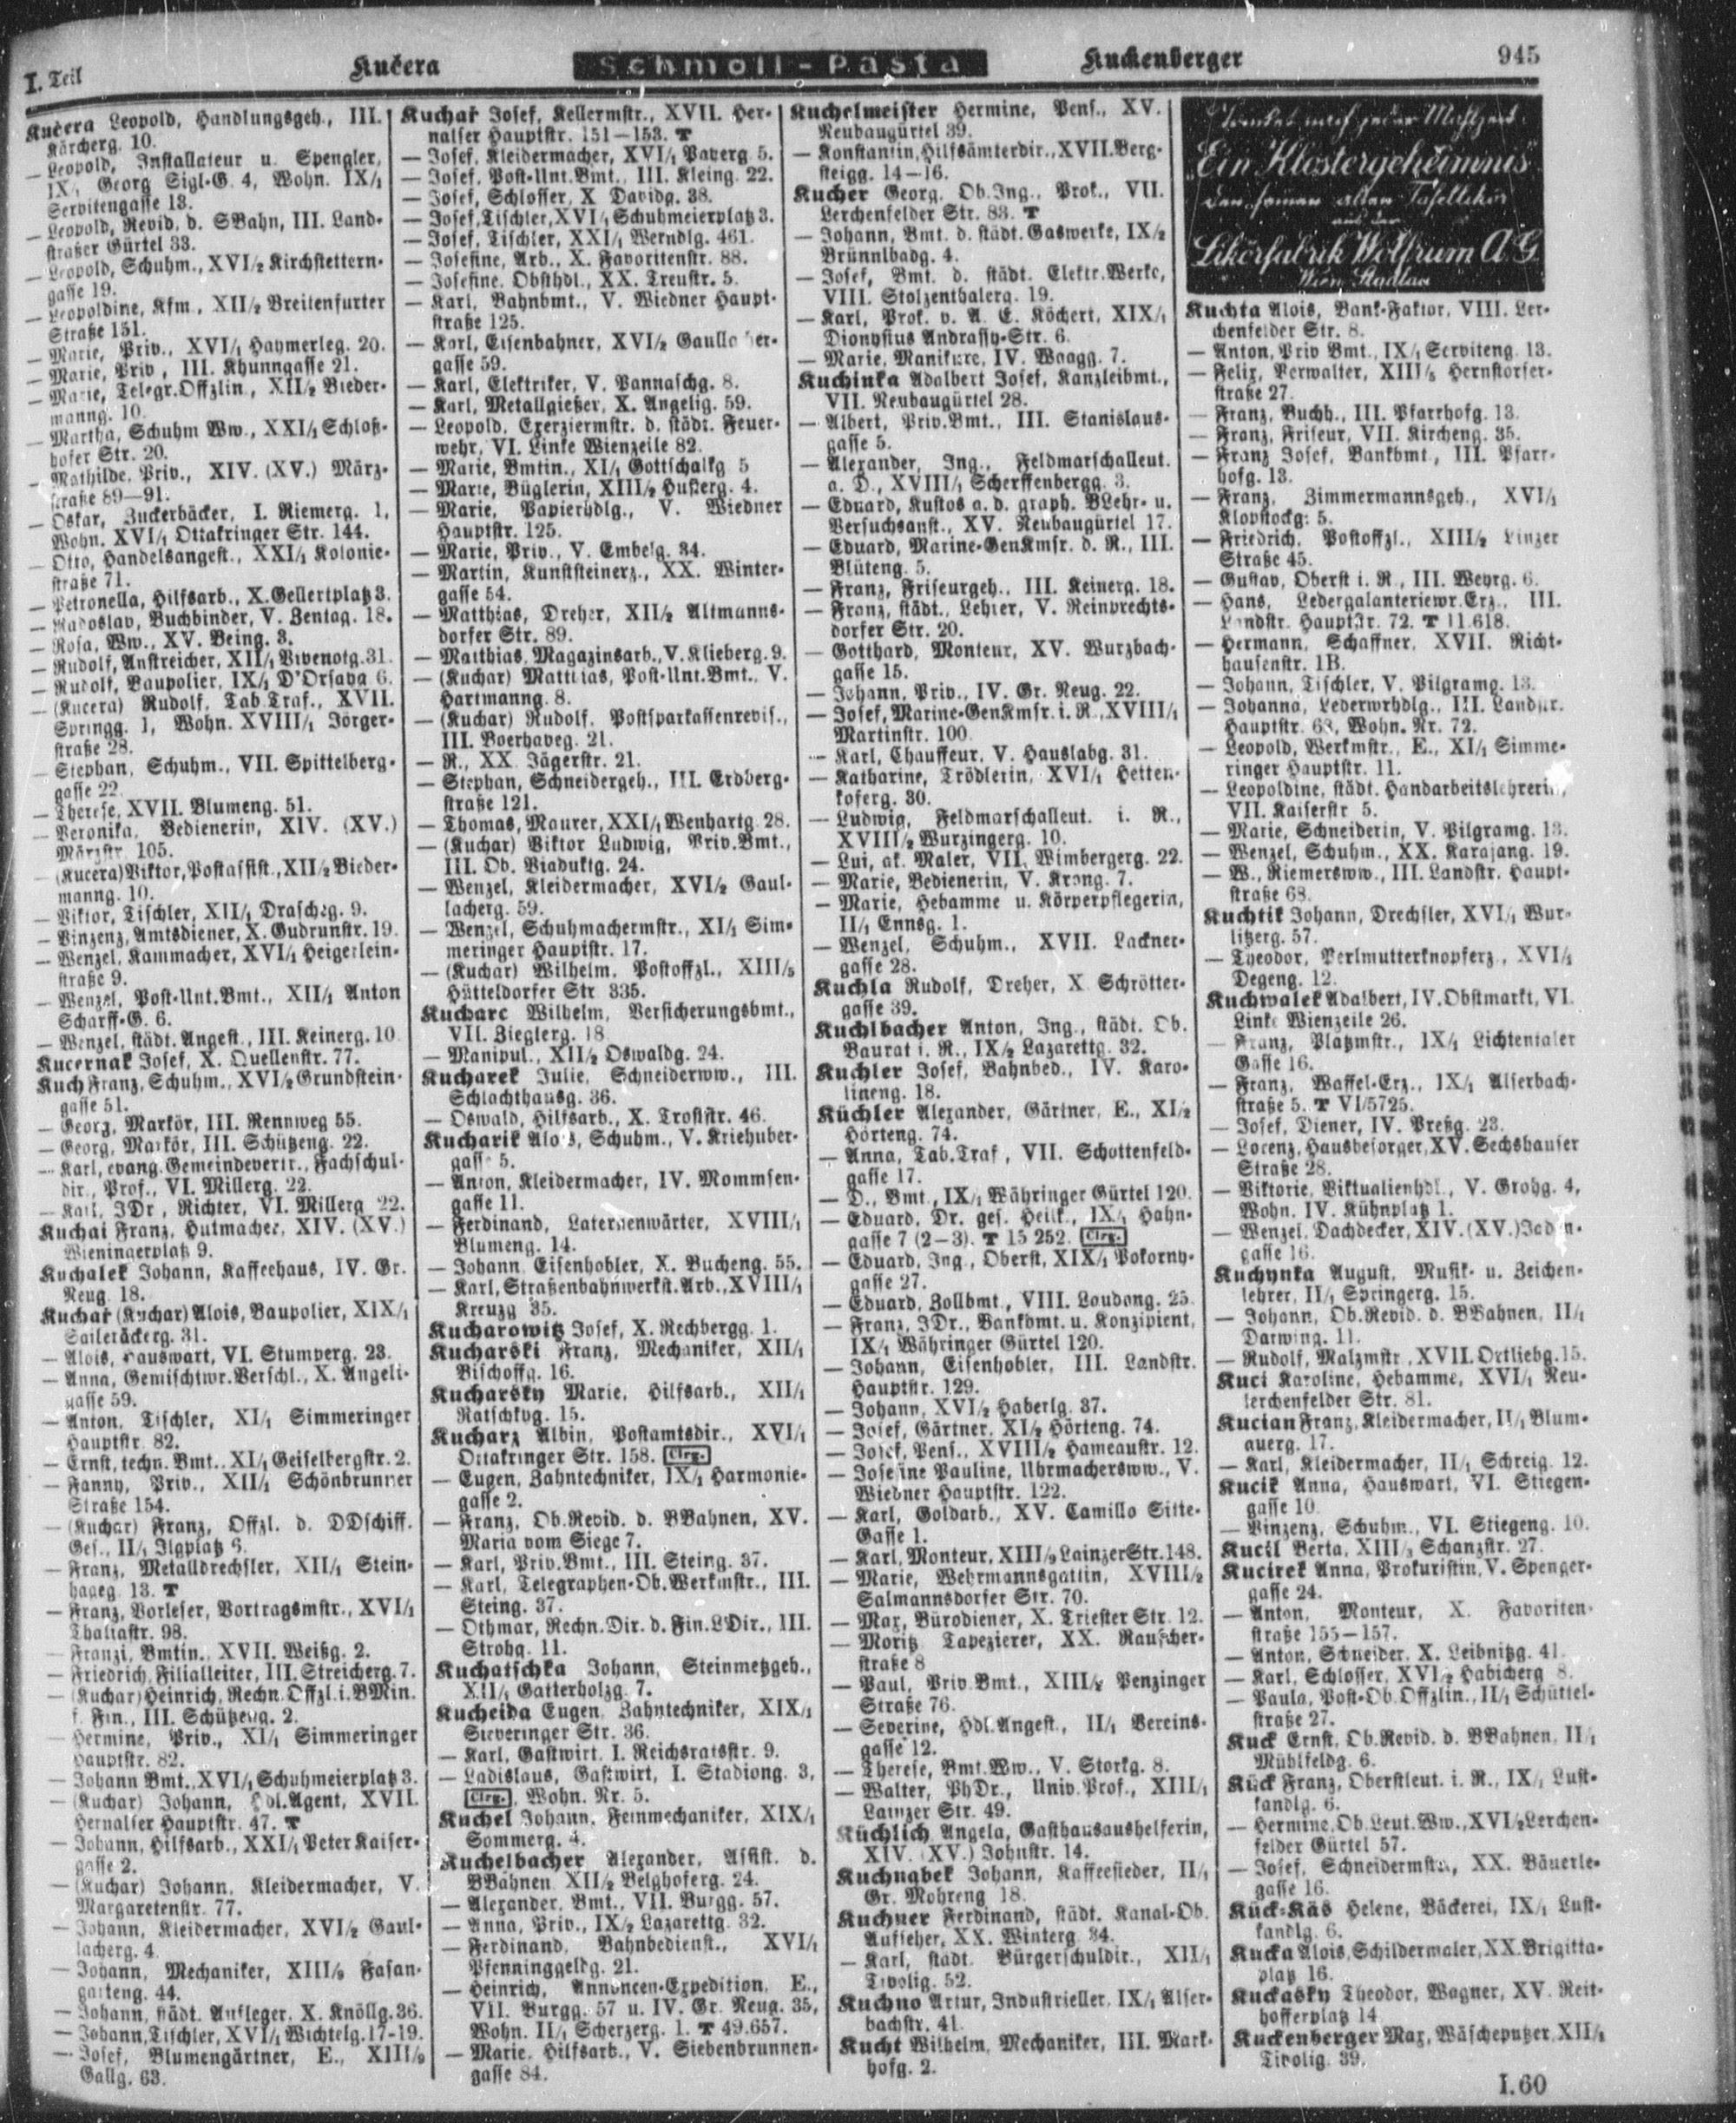 I. Teil
Kučera
Schmoll-Pasta
Kuckenberger
945
Kučera Leopold, Handlungsgeh., III.
Kärcherg. 10.
— Leopold, Installateur u. Spengler,
IX/1 Georg Sigl-G. 4, Wohn. IX/1
Servitengasse 13.
— Leopold, Revid. d. SBahn, III. Land-
straßer Gürtel 33.
— Leopold, Schuhm., XVI/2 Kirchstettern-
gasse 19.
— Leopoldine, Kfm., XII/2 Breitenfurter
Straße 151.
— Marie, Priv., XVI/1 Haymerleg. 20.
— Marie, Priv., III. Khunngasse 21.
— Marie, Telegr.Offzlin., XII/2 Bieder-
manng. 10.
— Martha, Schuhm Ww., XXI/1 Schloß-
hofer Str. 20.
— Mathilde, Priv., XIV. (XV.) März-
straße 89—91.
— Oskar, Zuckerbäcker, I. Riemerg. 1,
Wohn. XVI/1 Ottakringer Str. 144.
— Otto, Handelsangest., XXI/1 Kolonie-
straße 71.
— Petronella, Hilfsarb., X. Gellertplatz 3.
— Radoslav, Buchbinder, V. Zentag. 18.
— Rosa, Ww., XV. Being. 3.
— Rudolf, Anstreicher, XII/1 Vivenotg. 31.
— Rudolf, Baupolier, IX/1 D'Orsayg. 6.
— (Kucera) Rudolf, Tab.Traf., XVII.
Springg. 1, Wohn. XVIII/1 Jörger-
straße 28.
— Stephan, Schuhm., VII. Spittelberg-
gasse 22.
— Therese, XVII. Blumeng. 51.
— Veronika, Bedienerin, XIV. (XV.)
Märzstr. 105.
— (Kucera) Viktor, Postassist., XII/2 Bieder-
manng. 10.
— Viktor, Tischler, XII/1 Drascheg. 9.
— Vinzenz, Amtsdiener, X. Gudrunstr. 19.
— Wenzel, Kammacher, XVI/1 Heigerlein-
straße 9.
— Wenzel, Post-Unt.Bmt., XII/1 Anton
Scharff-G. 6.
— Wenzel, städt. Angest., III. Keinerg. 10.
Kucernak Josef, X. Quellenstr. 77.
Kuch Franz, Schuhm., XVI/2 Grundstein-
gasse 51.
— Georg, Markör, III. Rennweg 55.
— Georg, Markör, III. Schützeng. 22.
— Karl, evang. Gemeindevertr., Fachschul-
dir., Prof., VI. Millerg. 22.
— Karl, JDr., Richter, VI. Millerg. 22.
Kuchai Franz, Hutmacher, XIV. (XV.)
Wieningerplatz 9.
Kuchalek Johann, Kaffeehaus, IV. Gr.
Neug. 18.
Kuchař (Kuchar) Alois, Baupolier, XIX/1
Saileräckerg. 31.
— Alois, Hauswart, VI. Stumperg. 23.
— Anna, Gemischtwr.Verschl., X. Angeli-
gasse 59.
— Anton, Tischler, XI/1 Simmeringer
Hauptstr. 82.
— Ernst, techn. Bmt., XI/1 Geiselbergstr. 2.
— Fanny, Priv., XII/1 Schönbrunner
Straße 154.
— (Kuchar) Franz, Offzl. d. DDschiff.
Ges., II/1 Ilgplatz 6.
— Franz, Metalldrechsler, XII/1 Stein-
hageg. 13. T
— Franz, Vorleser, Vortragsmstr., XVI/1
Thaliastr. 98.
— Franzi, Bmtin., XVII. Weißg. 2.
— Friedrich, Filialleiter, III. Streicherg. 7.
— (Kuchar) Heinrich, Rechn.Offzl. i. BMin.
f. Fin., III. Schützeng. 2.
— Hermine, Priv., XI/1 Simmeringer
Hauptstr. 82.
— Johann Bmt., XVI/1 Schuhmeierplatz 3.
— (Kuchar) Johann, Hdl.Agent, XVII.
Hernalser Hauptstr. 47. T
— Johann, Hilfsarb., XXI/1 Peter Kaiser-
gasse 2.
— (Kuchar) Johann, Kleidermacher, V.
Margaretenstr. 77.
— Johann, Kleidermacher, XVI/2 Gaul-
lacherg. 4.
— Johann, Mechaniker, XIII/9 Fasan-
garteng. 44.
— Johann, städt. Aufleger, X. Knöllg. 36.
— Johann, Tischler, XVI/1 Wichtelg. 17-19.
— Josef, Blumengärtner, E., XIII/9
Gallg. 63.
Kuchař Josef, Kellermstr., XVII. Her-
nalser Hauptstr. 151—153. T
— Josef, Kleidermacher, XVI/1 Payerg. 5.
— Josef, Post-Unt.Bmt., III. Kleing. 22.
— Josef, Schlosser, X. Davidg. 38.
— Josef, Tischler, XVI/1 Schuhmeierplatz 3.
— Josef, Tischler, XXI/1 Werndlg. 461.
— Josefine, Arb., X. Favoritenstr. 88.
— Josefine, Obsthdl., XX. Treustr. 5.
— Karl, Bahnbmt., V. Wiedner Haupt-
straße 125.
— Karl, Eisenbahner, XVI/2 Gaullacher-
gasse 59.
— Karl, Elektriker, V. Pannaschg. 8.
— Karl, Metallgießer, X. Angelig. 59.
— Leopold, Exerziermstr. d. städt. Feuer-
wehr, VI. Linke Wienzeile 82.
— Marie, Bmtin., XI/1 Gottschalkg. 5
— Marie, Büglerin, XIII/2 Hußerg. 4.
— Marie, Papierhdlg., V. Wiedner
Hauptstr. 125.
— Marie, Priv., V. Embelg. 34.
— Martin, Kunststeinerz., XX. Winter-
gasse 54.
— Matthias, Dreher, XII/2 Altmanns-
dorfer Str. 89.
— Matthias, Magazinsarb., V. Klieberg. 9.
— (Kuchar) Matthias, Post-Unt.Bmt., V.
Hartmanng. 8.
— (Kuchar) Rudolf, Postsparkassenrevis.,
III. Boerhaveg. 21.
— R., XX. Jägerstr. 21.
— Stephan, Schneidergeh., III. Erdberg-
straße 121.
— Thomas, Maurer, XXI/1 Wenhartg. 28.
— (Kuchar) Viktor Ludwig, Priv.Bmt.,
III. Ob. Viaduktg. 24.
— Wenzel, Kleidermacher, XVI/2 Gaul-
lacherg. 59.
— Wenzel, Schuhmachermstr., XI/1 Sim-
meringer Hauptstr. 17.
— (Kuchar) Wilhelm, Postoffzl., XIII/5
Hütteldorfer Str. 335.
Kucharc Wilhelm, Versicherungsbmt.,
VII. Zieglerg. 18
— Manipul., XII/2 Oswaldg. 24.
Kucharek Julie, Schneiderww., III.
Schlachthausg. 36.
— Oswald, Hilfsarb., X. Troststr. 46.
Kucharik Alois, Schuhm., V. Kriehuber-
gasse 5.
— Anton, Kleidermacher, IV. Mommsen-
gasse 11.
— Ferdinand, Laternenwärter, XVIII/1
Blumeng. 14.
— Johann, Eisenhobler, X. Bucheng. 55.
— Karl, Straßenbahnwerkst.Arb., XVIII/1
Kreuzg. 35.
Kucharowitz Josef, X. Rechbergg. 1.
Kucharski Franz, Mechaniker, XII/1
Bischoffg. 16.
Kucharsky Marie, Hilfsarb., XII/1
Ratschkyg. 15.
Kucharz Albin, Postamtsdir., XVI/1
Ottakringer Str. 158. Clrg.
— Eugen, Zahntechniker, IX/1 Harmonie-
gasse 2.
— Franz, Ob.Revid. d. BBahnen, XV.
Maria vom Siege 7.
— Karl, Priv.Bmt., III. Steing. 37.
— Karl, Telegraphen-Ob.Werkmstr., III.
Steing. 37.
— Othmar, Rechn.Dir. d. Fin.LDir., III.
Strohg. 11.
Kuchatschka Johann, Steinmetzgeh.,
XII/1 Gatterholzg. 7.
Kucheida Eugen, Zahntechniker, XIX/1
Sieveringer Str. 36.
— Karl, Gastwirt, I. Reichsratsstr. 9.
— Ladislaus, Gastwirt, I. Stadiong. 3,
Clrg., Wohn. Nr. 5.
Kuchel Johann, Feinmechaniker, XIX/1
Sommerg. 4.
Kuchelbacher Alexander, Assist. d.
BBahnen, XII/2 Belghoferg. 24.
— Alexander, Bmt., VII. Burgg. 57.
— Anna, Priv., IX/2 Lazarettg. 32.
— Ferdinand, Bahnbedienst., XVI/1
Pfenninggeldg. 21.
— Heinrich, Annoncen-Expedition, E.,
VII. Burgg. 57 u. IV. Gr. Neug. 35,
Wohn. II/1 Scherzerg. 1. T 49.657.
— Marie, Hilfsarb., V. Siebenbrunnen-
gasse 84.
Kuchelmeister Hermine, Pens., XV.
Neubaugürtel 39.
— Konstantin, Hilfsämterdir., XVII. Berg-
steigg. 14—16.
Kucher Georg, Ob.Ing., Prok., VII.
Lerchenfelder Str. 83. T
— Johann, Bmt. d. städt. Gaswerke, IX/2
Brünnlbadg. 4.
— Josef, Bmt. d. städt. Elektr.Werke,
VIII. Stolzenthalerg. 19.
— Karl, Prok. v. A. E. Köchert, XIX/1
Dionysius Andrassy-Str. 6.
— Marie, Manikure, IV. Waagg. 7.
Kuchinka Adalbert Josef, Kanzleibmt.,
VII. Neubaugürtel 28.
— Albert, Priv.Bmt., III. Stanislaus-
gasse 5.
— Alexander, Ing., Feldmarschalleut.
a. D., XVIII/1 Scherffenbergg. 3.
— Eduard, Kustos a. d. graph. BLehr- u.
Versuchsanst., XV. Neubaugürtel 17.
— Eduard, Marine-GenKmsr. d. R., III.
Blüteng. 5.
— Franz, Friseurgeh., III. Keinerg. 18.
— Franz, städt. Lehrer, V. Reinprechts-
dorfer Str. 20.
— Gotthard, Monteur, XV. Wurzbach-
gasse 15.
— Johann, Priv., IV. Gr. Neug. 22.
— Josef, Marine-GenKmsr. i. R., XVIII/1
Martinstr. 100.
— Karl, Chauffeur, V. Hauslabg. 31.
— Katharine, Trödlerin, XVI/1 Hetten-
koferg. 30.
— Ludwig, Feldmarschalleut. i. R.,
XVIII/2 Wurzingerg. 10.
— Lui, ak. Maler, VII. Wimbergerg. 22.
— Marie, Bedienerin, V. Krong. 7.
— Marie, Hebamme u. Körperpflegerin,
II/1 Ennsg. 1.
— Wenzel, Schuhm., XVII. Lackner-
gasse 28.
Kuchla Rudolf, Dreher, X. Schrötter-
gasse 39.
Kuchlbacher Anton, Ing., städt. Ob.
Baurat i. R., IX/2 Lazarettg. 32.
Kuchler Josef, Bahnbed., IV. Karo-
lineng. 18.
Küchler Alexander, Gärtner, E., XI/2
Hörteng. 74.
— Anna, Tab.Traf., VII. Schottenfeld-
gasse 17.
— D., Bmt., IX/1 Währinger Gürtel 120.
— Eduard, Dr. ges. Heilk., IX/1 Hahn-
gasse 7 (2—3). T 15 252. Clrg.
— Eduard, Ing., Oberst, XIX/1 Pokorny-
gasse 27.
— Eduard, Zollbmt., VIII. Laudong. 25.
— Franz, JDr., Bankbmt. u. Konzipient,
IX/1 Währinger Gürtel 120.
— Johann, Eisenhobler, III. Landstr.
Hauptstr. 129.
— Johann, XVI/2 Haberlg. 37.
— Josef, Gärtner, XI/2 Hörteng. 74.
— Josef, Pens., XVIII/2 Hameaustr. 12.
— Josefine Pauline, Uhrmachersww., V.
Wiedner Hauptstr. 122.
— Karl, Goldarb., XV. Camillo Sitte-
Gasse 1.
— Karl, Monteur, XIII/9 Lainzer Str. 148.
— Marie, Wehrmannsgattin, XVIII/2
Salmannsdorfer Str. 70.
— Max, Bürodiener, X. Triester Str. 12.
— Moritz Tapezierer, XX. Rauscher-
straße 8
— Paul, Priv.Bmt., XIII/2 Penzinger
Straße 76.
— Severine, Hdl.Angest., II/1 Vereins-
gasse 12.
— Therese, Bmt.Ww., V. Storkg. 8.
— Walter, PhDr., Univ.Prof., XIII/1
Lainzer Str. 49.
Küchlich Angela, Gasthausaushelferin,
XIV. (XV.) Johnstr. 14.
Kuchnabek Johann, Kaffeesieder, II/1
Gr. Mohreng. 18.
Kuchner Ferdinand, städt. Kanal-Ob.
Aufseher, XX. Winterg. 34.
— Karl, städt. Bürgerschuldir., XII/1
Tivolig. 52.
Kuchno Artur, Industrieller, IX/1 Alser-
bachstr. 41.
Kucht Wilhelm, Mechaniker, III. Mark-
hofg. 2.
Trinket nach jeder Mahlzeit
"Ein Klostergeheimnis"
den feinen alten Tafellikör
aus der
Likörfabrik Wolfrum A.G.
Wien Stadlau
Kuchta Alois, Bank-Faktor, VIII. Ler-
chenfelder Str. 8.
— Anton, Priv.Bmt., IX/1 Serviteng. 13.
— Felix, Verwalter, XIII/5 Hernstorfer-
straße 27.
— Franz, Buchb., III. Pfarrhofg. 13.
— Franz, Friseur, VII. Kircheng. 35.
— Franz Josef, Bankbmt., III. Pfarr-
hofg. 13.
— Franz, Zimmermannsgeh., XVI/1
Klopstockg. 5.
— Friedrich, Postoffzl., XIII/2 Linzer
Straße 45.
— Gustav, Oberst i. R., III. Weyrg. 6.
— Hans, Ledergalanteriewr.Erz., III.
Landstr. Hauptstr. 72. T 11.618.
— Hermann, Schaffner, XVII. Richt-
hausenstr. 1B.
— Johann, Tischler, V. Pilgramg. 13.
— Johanna, Lederwrhdlg., III. Landstr.
Hauptstr. 68, Wohn. Nr. 72.
— Leopold, Werkmstr., E., XI/1 Simme-
ringer Hauptstr. 11.
— Leopoldine, städt. Handarbeitslehrerin,
VII. Kaiserstr. 5.
— Marie, Schneiderin, V. Pilgramg. 13.
— Wenzel, Schuhm., XX. Karajang. 19.
— W., Riemersww., III. Landstr. Haupt-
straße 68.
Kuchtik Johann, Drechsler, XVI/1 Wur-
litzerg. 57.
— Theodor, Perlmutterknopferz., XVI/1
Degeng. 12.
Kuchwalek Adalbert, IV. Obstmarkt, VI.
Linke Wienzeile 26.
— Franz, Platzmstr., IX/1 Lichtentaler
Gasse 16.
— Franz, Waffel-Erz., IX/1 Alserbach-
straße 5. T VI/5725.
— Josef, Diener, IV. Preßg. 23.
— Lorenz, Hausbesorger, XV. Sechshauser
Straße 28.
— Viktorie, Viktualienhdl., V. Grohg. 4,
Wohn. IV. Kühnplatz 1.
— Wenzel, Dachdecker, XIV. (XV.) Jaden-
gasse 16.
Kuchynka August, Musik- u. Zeichen-
lehrer, II/1 Springerg. 15.
— Johann, Ob.Revid. d. BBahnen, II/1
Darwing. 11.
— Rudolf, Malzmstr., XVII. Ortliebg. 15.
Kuci Karoline, Hebamme, XVI/1 Neu-
lerchenfelder Str. 81.
Kucian Franz, Kleidermacher, II/1 Blum-
auerg. 17.
— Karl, Kleidermacher, II/1 Schreig. 12.
Kucik Anna, Hauswart, VI. Stiegen-
gasse 10.
— Vinzenz, Schuhm., VI. Stiegeng. 10.
Kucil Berta, XIII/3 Schanzstr. 27.
Kucirek Anna, Prokuristin, V. Spenger-
gasse 24.
— Anton, Monteur, X. Favoriten-
straße 155—157.
— Anton, Schneider, X. Leibnitzg. 41.
— Karl, Schlosser, XVI/2 Habicherg. 8.
— Paula, Post-Ob.Offzlin., II/1 Schüttel-
straße 27.
Kuck Ernst, Ob.Revid. d. BBahnen, II/1
Mühlfeldg. 6.
Kück Franz, Oberstleut. i. R., IX/1 Lust-
kandlg. 6.
— Hermine, Ob.Leut.Ww., XVI/2 Lerchen-
felder Gürtel 57.
— Josef, Schneidermstr., XX. Bäuerle-
gasse 16.
Kück-Käs Helene, Bäckerei, IX/1 Lust-
kandlg. 6.
Kucka Alois, Schildermaler, XX. Brigitta-
platz 16.
Kuckasky Theodor, Wagner, XV. Reit-
hofferplatz 14.
Kuckenberger Max, Wäscheputzer, XII/1
Tivolig. 39.
I.60